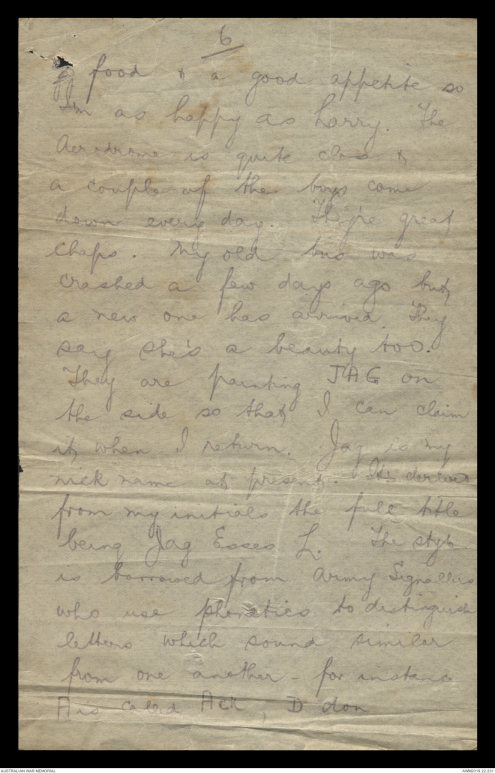 6
of food & a good appetite so
I'm as happy as Larry. The
Aerodrome is quite close &
a couple of the boys come
down every day. They're great
chaps. My old bus was
crashed a few days ago but
a new one has arrived. They
say she's a beauty too.
They are painting JAG on
the side so that I can claim
it when I return. Jag is my
nick name at present. Its derived
from my initials the full title
being Jag Esses L. The style
is borrowed from Army Signallers
who use phonetics to distinguish
letters which sound similar
from one another - for instance
A is called Ack, D don
AUSTRALIAN WAR MEMORIAL